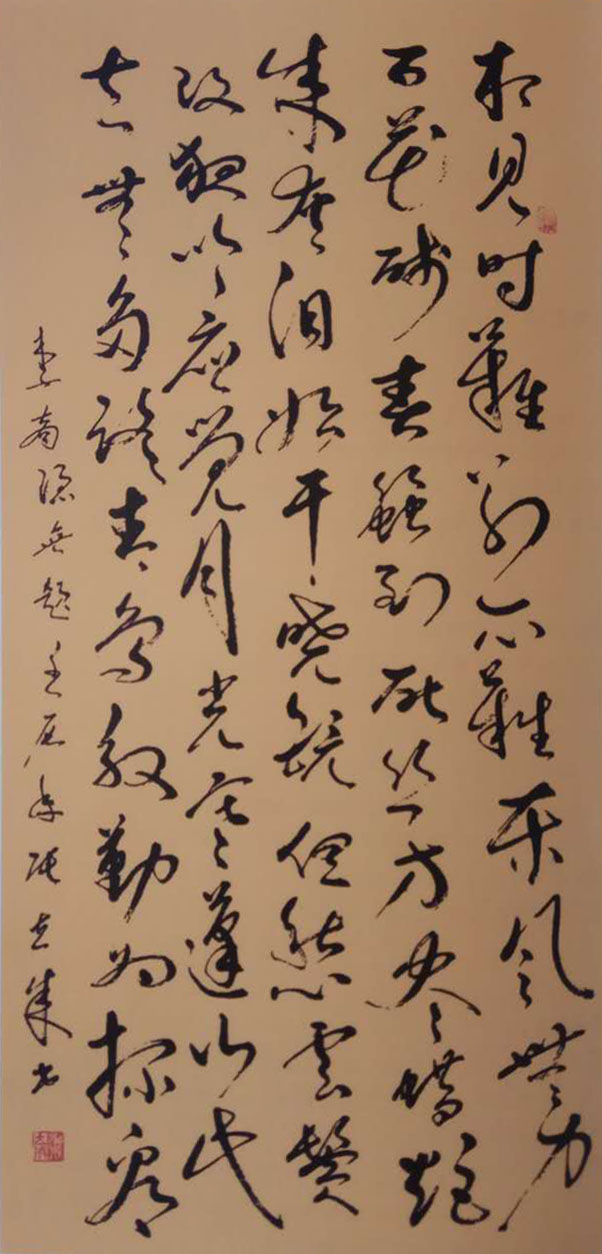 相見時難別亦難東風無力
百花殘春蠶到死絲方盡蠟炬
成灰泪始干曉鏡但愁雲鬢
改夜吟應覺月光寒蓬山此
去無多路青鳥殷勤為探看
李商隱無題壬辰年張立成书